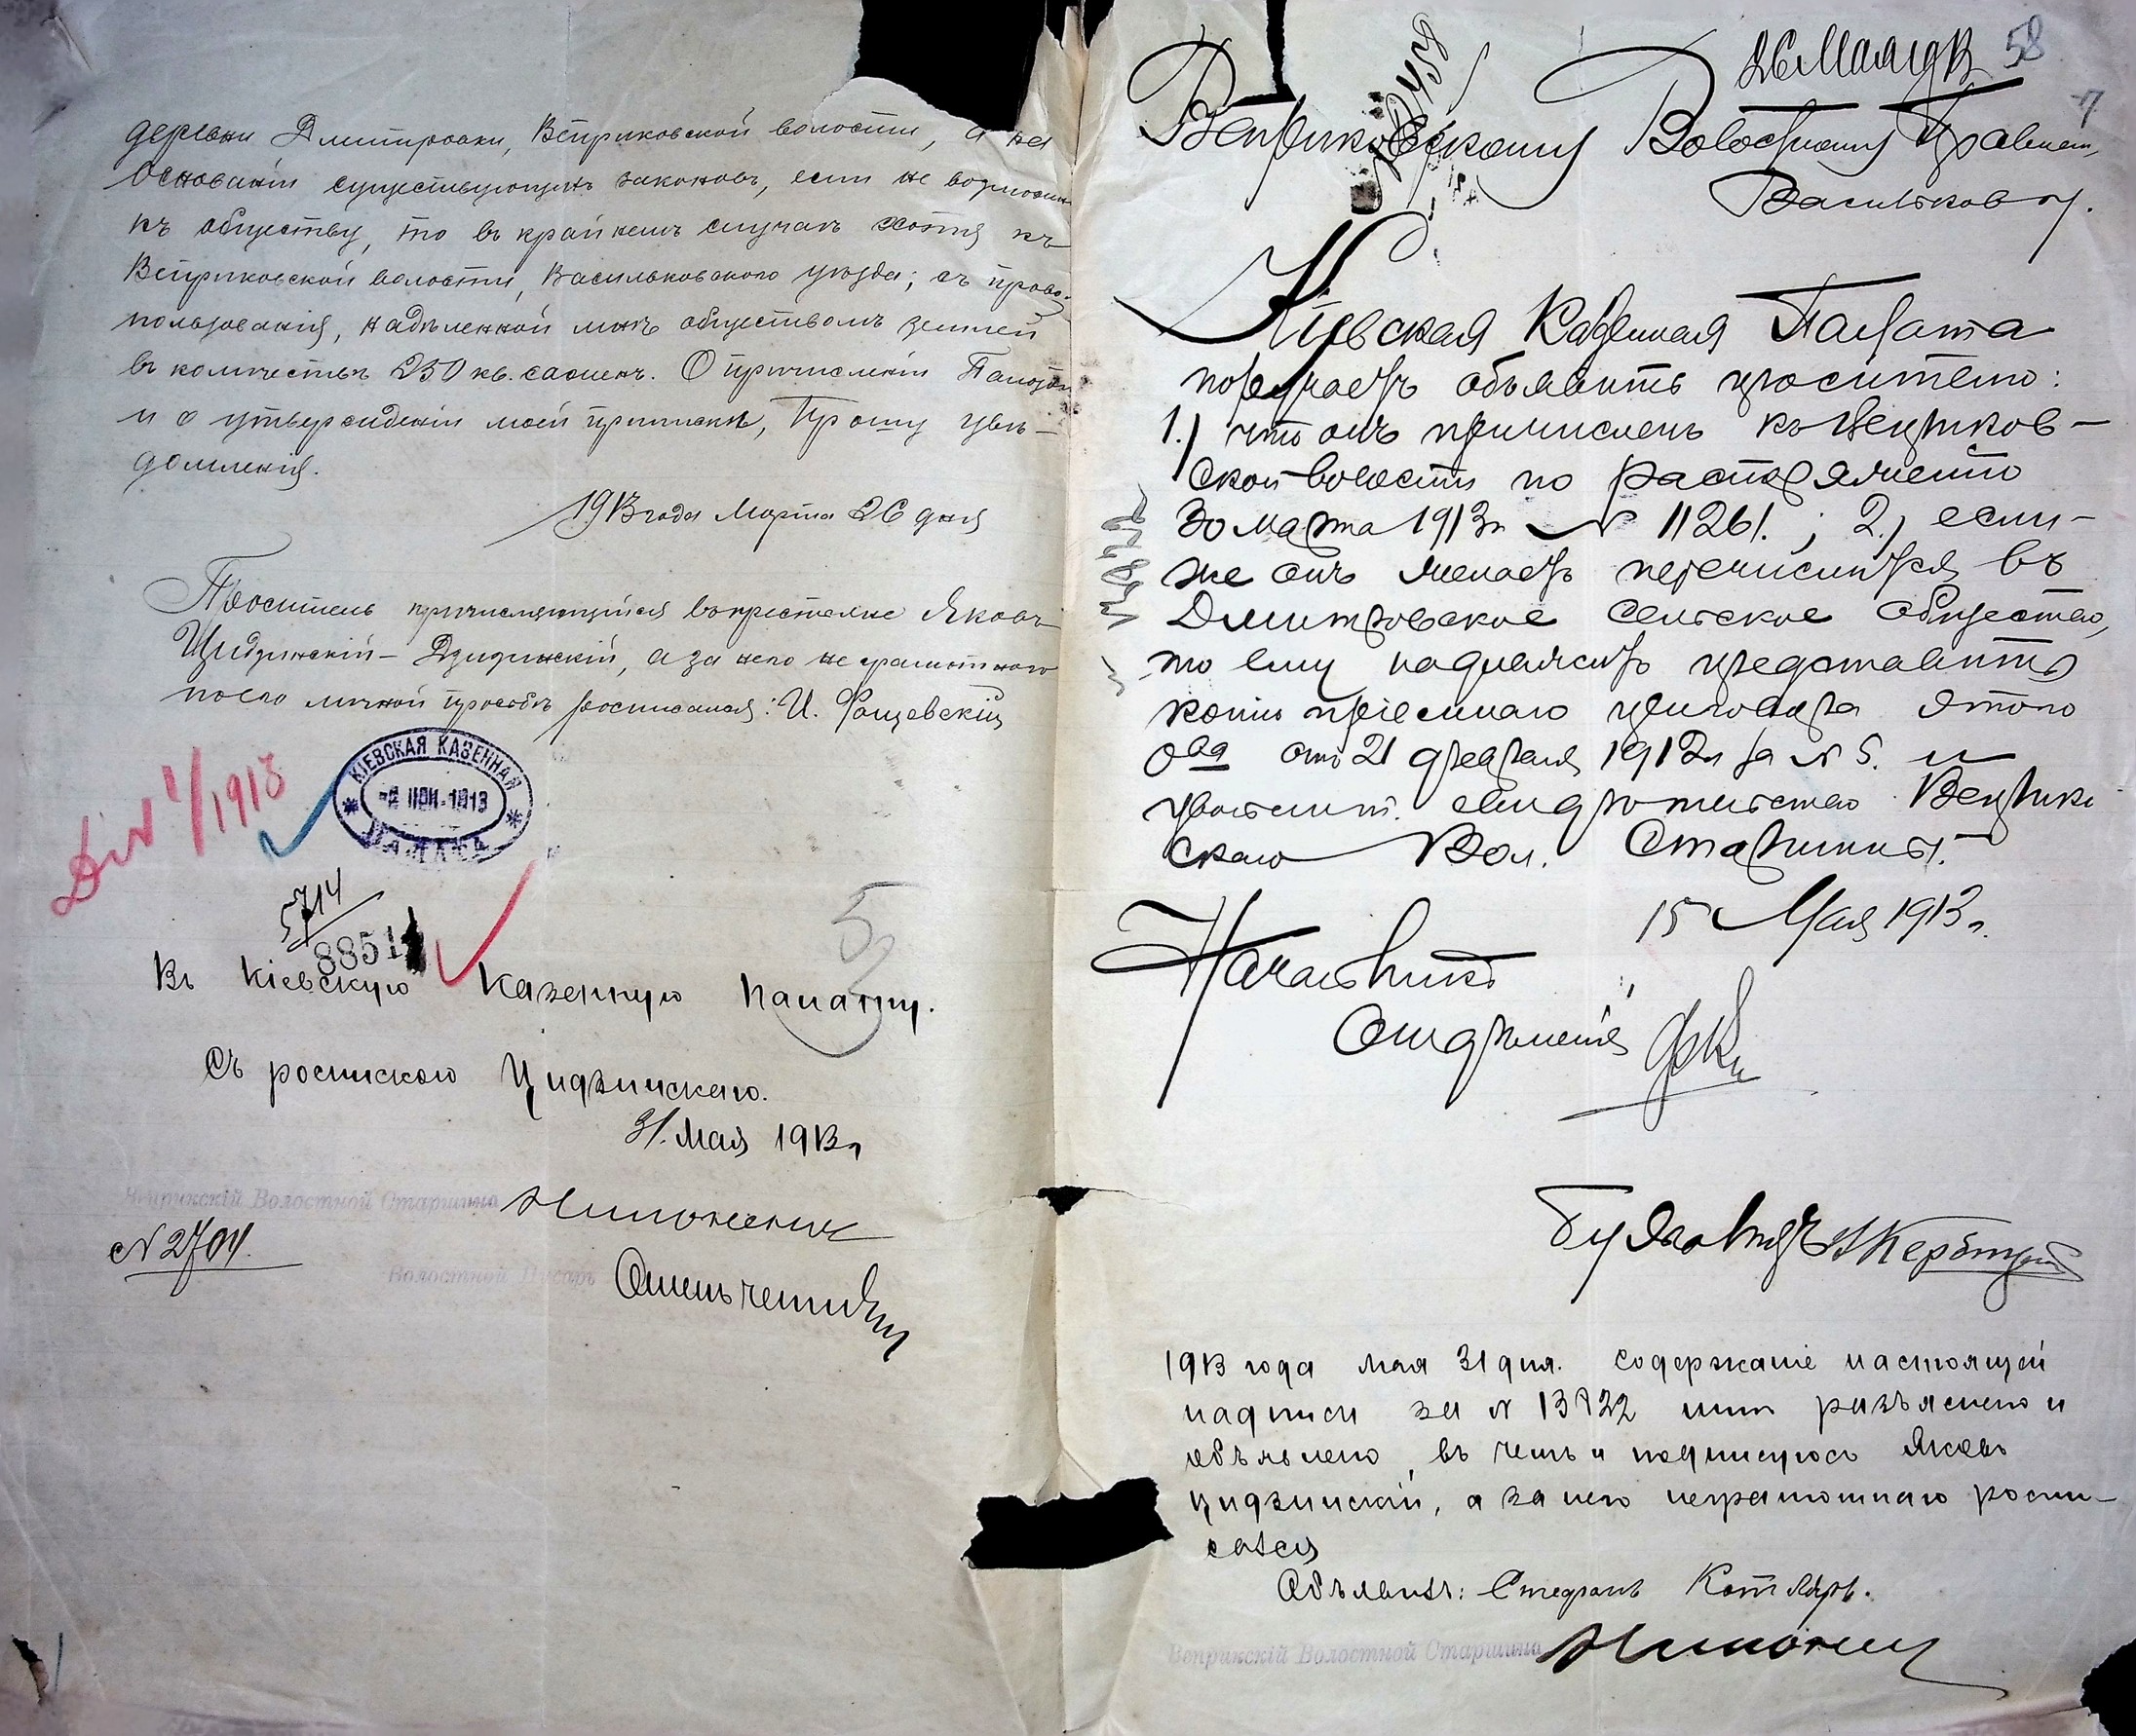 деревни Дмитровки, Веприковской волости, а на
основаніи существующихъ законовъ, если не возможно
къ обществу, то въ крайнемъ случаѣ хотя къ
Веприковской волости, Васильковского уѣзда; съ право
пользованія, надѣленной мнѣ обществомъ землей
въ количествѣ 250 кв. сажень. О причисленіи
и о утвержденіи моей приписки, Прошу увѣ-
домленія.
1913 года Марта 26 дня
Проситель причисляющійся въ крестьяне Яковъ
Цидзинскій-Дзидзинскій, а за него не грамотного
по его личной просьбѣ росписался: И.
№ 1/1913
КІЕВСКАЯ КАЗЕННАЯ ПАЛАТА
-2 ІЮН. 1913
5714
88511
52
Въ Кіевскую Казенную Палату.
Съ роспискою Цидзинскаго.
31 Мая 1913 г
Веприкскій Волостной Старшина
№ 2701.
Волостной Писарь
26 Мая 1913
58
7
Веприковскому Волостному Правлен.
Васильков у.
Кіевская Казенная Палата
поручаетъ объявить просителю:
1.) что онъ причисленъ къ Веприков-
ской волости по распоряженію
30 марта 1913 г № 11261.; 2.) если-
же онъ желаетъ перечислится въ
Дмитровское сельское общество,
то ему надлежитъ представить
копію пріемнаго приговора этого
ова отъ 21 февраля 1912 г за № 5. и
увольнит. свидѣтельство Веприк
скаго Вол. Старшины.
15 Мая 1913 г.
Начальникъ
Отдѣленія
1913 года мая 31 дня. Содержаніе настоящей
надписи за № 13722 мнѣ разъяснено и
объявлено, въ чемъ и подписуюсь Яковъ
Цидзинскій, а за него неграмотнаго роспи-
сался
Объявилъ: Стефанъ Котляръ.
Веприкскій Волостной Старшина